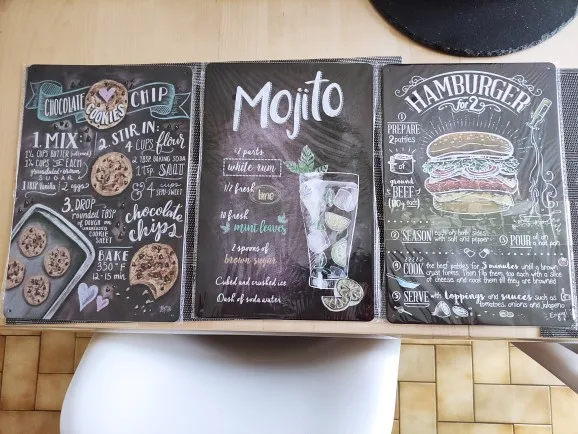 CHOCOLATE CHIP
COOKIES
1. MIX:
1 Tsp Vanilla 2 eggs
2. STIR IN:
4 CUPS flour
2 TBSP BAKING SODA
1 Tsp SALT
4 cups
SEMI-SWEET
chocolate
chips
3. DROP
rounded TBSP
of DOUGH
COOKIE
SHEET
BAKE
350°F
12-15 min.
Mojito
white rum
1/2 fresh
lime
10 fresh
mint leaves
2 spoons of
brown sugar
Cubed and crushed ice
Dash of soda water
HAMBURGER
for 2
1 PREPARE
2 patties
of
ground
BEEF
2 SEASON each on both sides
with salt and pepper
3 POUR oil on
a hot pan
4 COOK the beef patties for 3 minutes until a brown
crust forms. Then flip them, top each with a slice
of cheese and cook them till they are browned
5 SERVE with toppings and sauces such as
tomatoes, onions and jalapeno
Enjoy!